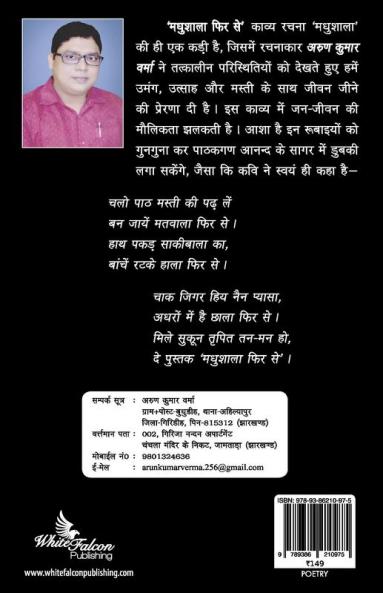 'मधुशाला फिर से' काव्य रचना 'मधुशाला'
की ही एक कड़ी है, जिसमें रचनाकार अरुण कुमार
वर्मा ने तत्कालीन परिस्थितियों को देखते हुए हमें
उमंग, उत्साह और मस्ती के साथ जीवन जीने
की प्रेरणा दी है। इस काव्य में जन-जीवन की
मौलिकता झलकती है। आशा है इन रूबाइयों को
गुनगुना कर पाठकगण आनन्द के सागर में डुबकी
लगा सकेंगे, जैसा कि कवि ने स्वयं ही कहा है—
चलो पाठ मस्ती की पढ़ लें
बन जायें मतवाला फिर से।
हाथ पकड़ साकीबाला का,
बांचें रटके हाला फिर से।
चाक जिगर हिय नैन प्यासा,
अधरों में है छाला फिर से।
मिले सुकून तृपित तन-मन हो,
दे पुस्तक 'मधुशाला फिर से'।
सम्पर्क सूत्र : अरुण कुमार वर्मा
ग्राम+पोस्ट-बुधुडीह, थाना-अहिल्यापुर
जिला-गिरिडीह, पिन-815312 (झारखण्ड)
वर्त्तमान पता : 002, गिरिजा नन्दन अपार्टमेंट
चंचला मंदिर के निकट, जामताड़ा (झारखण्ड)
मोबाईल नं0 : 9801324636
ई-मेल : arunkumarverma.256@gmail.com
White Falcon
Publishing
www.whitefalconpublishing.com
ISBN: 978-93-86210-97-5
9 789386 210975
₹149
POETRY